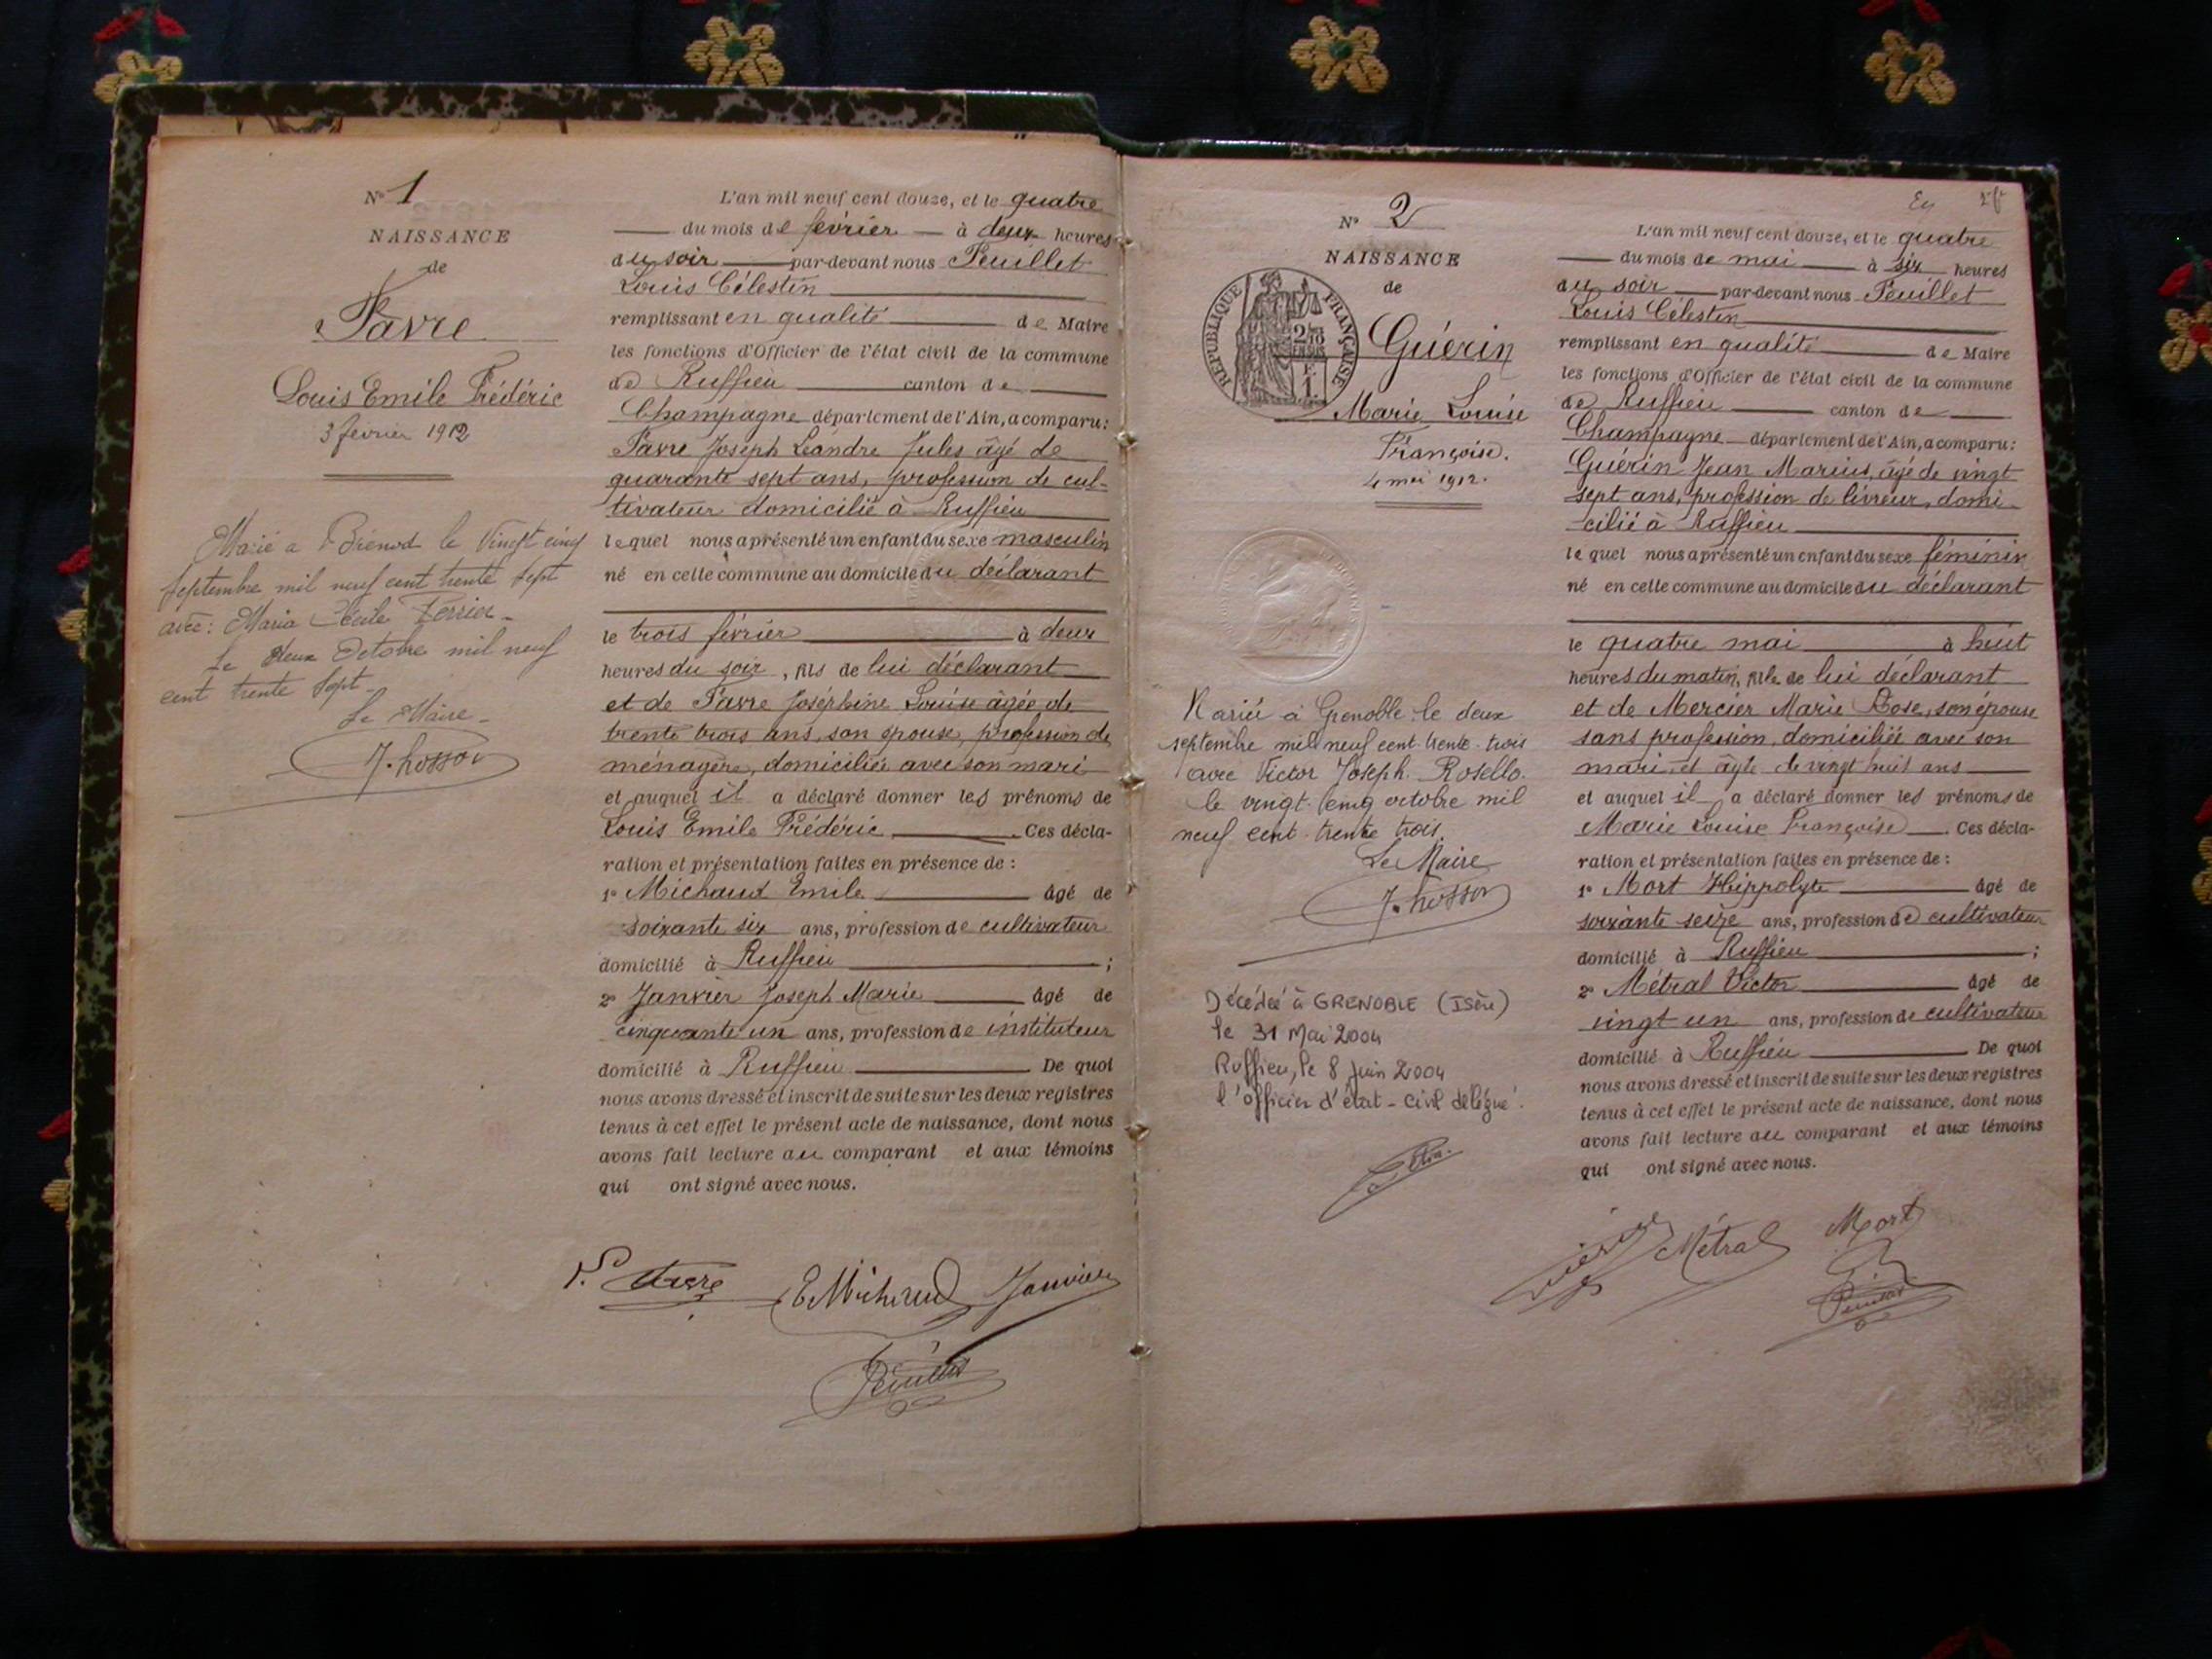 N° 1
NAISSANCE
de
Favre
Louis Emile Frédéric
3 février 1912
Marié a Brénod le Vingt cinq
septembre mil neuf cent trente sept
avec : Maria Cécile Perrier -
Le deux Octobre mil neuf
cent trente sept -
Le Maire -
L'an mil neuf cent douze, et le quatre
du mois de février à deux heures
du soir par-devant nous Feuillet
Louis Célestin
remplissant en qualité de Maire
les fonctions d'Officier de l'état civil de la commune
de Ruffieu canton de
Champagne département de l'Ain, a comparu :
Favre Joseph Léandre Jules âgé de
quarante sept ans, profession de cul-
tivateur domicilié à Ruffieu
lequel nous a présenté un enfant du sexe masculin
né en cette commune au domicile du déclarant
le trois février à deux
heures du soir, fils de lui déclarant
et de Favre Joséphine Louise âgée de
trente trois ans, son épouse, profession de
ménagère, domiciliée avec son mari
et auquel il a déclaré donner les prénoms de
Louis Emile Frédéric . Ces décla-
ration et présentation faites en présence de :
1° Michaud Emile âgé de
soixante six ans, profession de cultivateur
domicilié à Ruffieu ;
2° Janvier Joseph Marie âgé de
cinquante un ans, profession de instituteur
domicilié à Ruffieu De quoi
nous avons dressé et inscrit de suite sur les deux registres
tenus à cet effet le présent acte de naissance, dont nous
avons fait lecture au comparant et aux témoins
qui ont signé avec nous.
Favre E Michaud Janvier
Feuillet
N° 2
NAISSANCE
de
REPUBLIQUE FRANÇAISE
Guérin
Marie Louise
Françoise.
4 mai 1912.
Mariée à Grenoble le deux
septembre mil neuf cent trente-trois
avec Victor Joseph Rosello.
le vingt-cinq octobre mil
neuf cent trente trois.
Le Maire
Décédée à GRENOBLE (Isère)
le 31 Mai 2004
Ruffieu, le 8 Juin 2004
l'officier d'état-civil délégué.
L'an mil neuf cent douze, et le quatre
du mois de mai à six heures
du soir par-devant nous Feuillet
Louis Célestin
remplissant en qualité de Maire
les fonctions d'Officier de l'état civil de la commune
de Ruffieu canton de
Champagne département de l'Ain, a comparu :
Guérin Jean Marius, âgé de vingt
sept ans, profession de livreur, domi-
cilié à Ruffieu
lequel nous a présenté un enfant du sexe féminin
né en cette commune au domicile du déclarant
le quatre mai à huit
heures du matin, fille de lui déclarant
et de Mercier Marie Rose, son épouse
sans profession, domiciliée avec son
mari et âgée de vingt huit ans
et auquel il a déclaré donner les prénoms de
Marie Louise Françoise . Ces décla-
ration et présentation faites en présence de :
1° Mort Hippolyte âgé de
soixante seize ans, profession de cultivateur
domicilié à Ruffieu ;
2° Métral Victor âgé de
vingt un ans, profession de cultivateur
domicilié à Ruffieu De quoi
nous avons dressé et inscrit de suite sur les deux registres
tenus à cet effet le présent acte de naissance, dont nous
avons fait lecture au comparant et aux témoins
qui ont signé avec nous.
Métral Mort
Feuillet